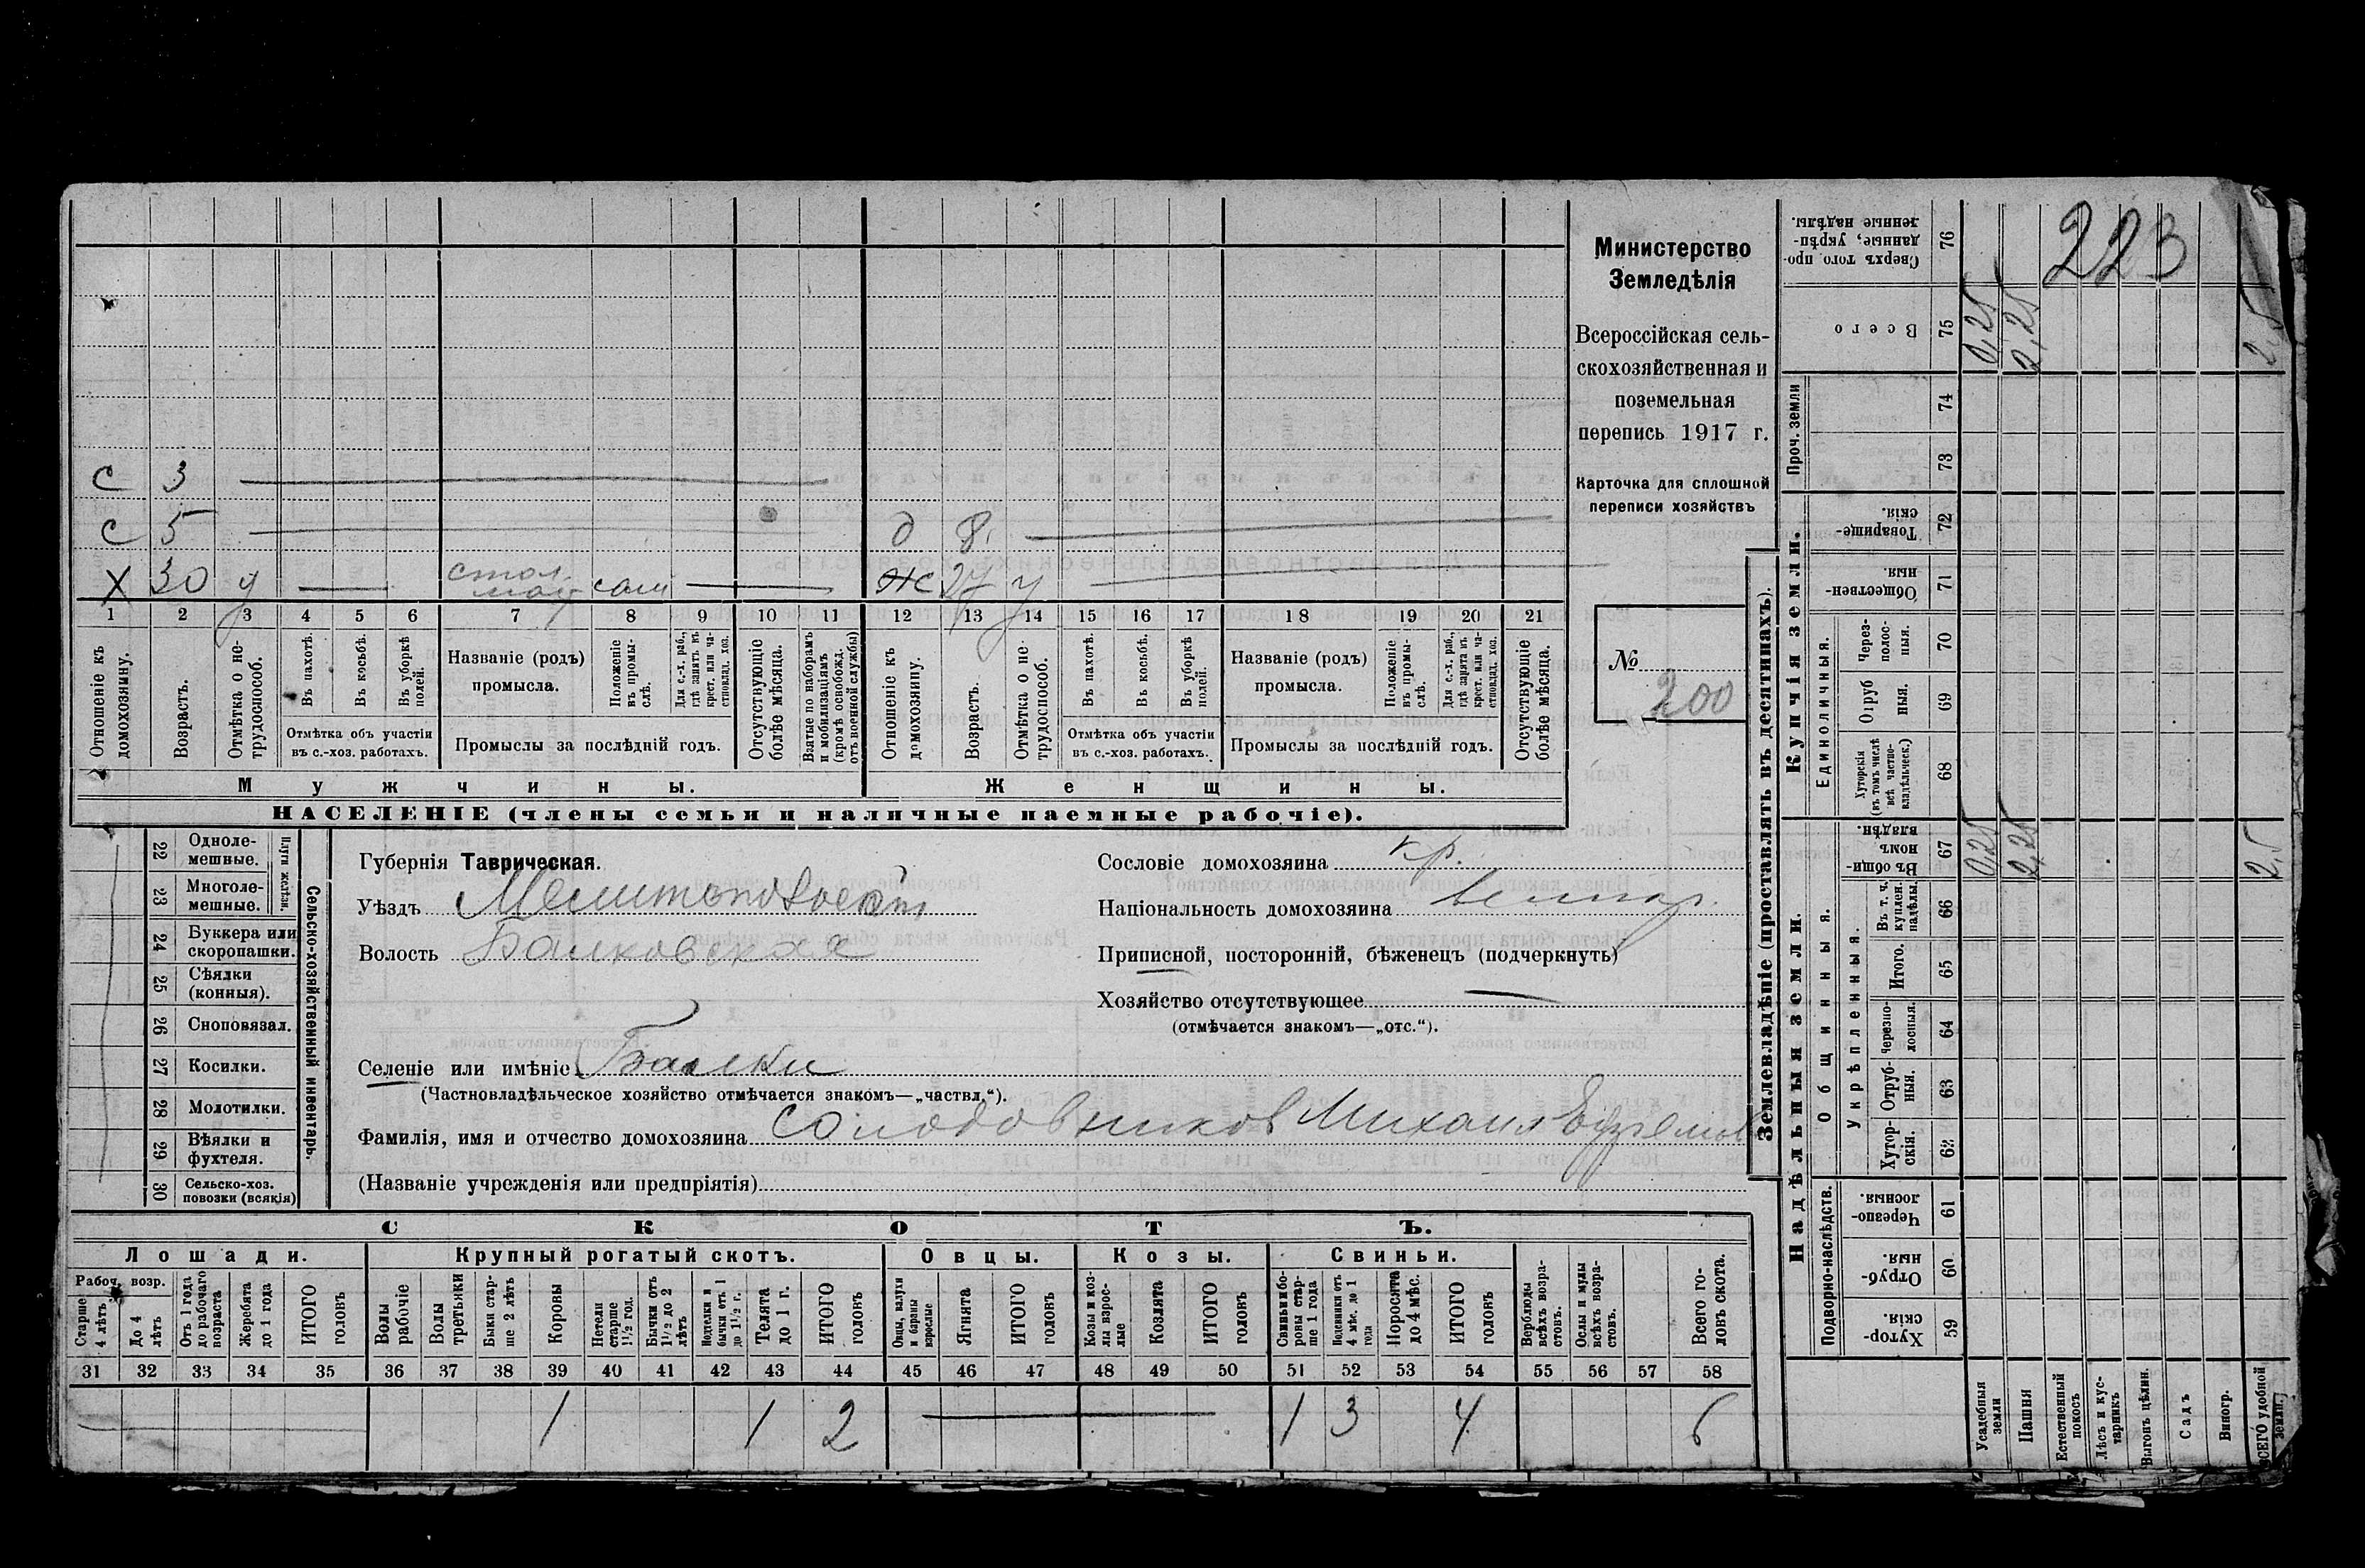 223
Министерство
Земледѣлія
Всероссійская сель-
скохозяйственная и
поземельная
перепись 1917 г.
Карточка для сплошной
переписи хозяйствъ
№
200
с 3
с 5
д 8.
Х 30 у
стол
сам
ж 27 у
1 2 3 4 5 6 7 8 9 10 11 12 13 14 15 16 17 18 19 20 21
Отношеніе къ домохозяину.
Возрастъ.
Отмѣтка о не-трудоспособ.
Въ пахотѣ.
Въ косьбѣ.
Въ уборкѣ полей.
Отмѣтка объ участіи
въ с.-хоз. работахъ.
Названіе (родъ)
промысла.
Положеніе въ промы-слѣ.
Для с.-х. раб., гдѣ занятъ въ крест. или ча-стновлад. хоз.
Промыслы за послѣдній годъ.
Отсутствующіе болѣе мѣсяца.
Взятые по наборамъ и мобилизаціямъ (кромѣ освобожд. отъ военной службы)
Отношеніе къ домохозяину.
Возрастъ.
Отмѣтка о не-трудоспособ.
Въ пахотѣ.
Въ косьбѣ.
Въ уборкѣ полей.
Отмѣтка объ участіи
въ с.-хоз. работахъ.
Названіе (родъ)
промысла.
Положеніе въ промы-слѣ.
Для с.-х. раб., гдѣ занята въ крест. или ча-стновлад. хоз.
Промыслы за послѣдній годъ.
Отсутствующіе болѣе мѣсяца.
Мужчины.
Женщины.
НАСЕЛЕНІЕ (члены семьи и наличные наемные рабочіе).
Сельско-хозяйственный инвентарь.
Плуги желѣзн.
22 Одноле-мешные.
23 Многоле-мешные.
24 Буккера или скоропашки.
25 Сѣялки (конныя).
26 Сноповязал.
27 Косилки.
28 Молотилки.
29 Вѣялки и фухтеля.
30 Сельско-хоз. повозки (всякія)
Губернія Таврическая.
Уѣздъ Мелитопольскій
Волость Балковская
Сословіе домохозяина кр.
Національность домохозяина великор.
Приписной, посторонній, бѣженецъ (подчеркнуть)
Хозяйство отсутствующее
(отмѣчается знакомъ—„отс.“).
Селеніе или имѣніе Балки
(Частновладѣльческое хозяйство отмѣчается знакомъ—„частвл.“).
Фамилія, имя и отчество домохозяина Солодовников Михаил Ефремов
(Названіе учрежденія или предпріятія)
СКОТЪ.
Лошади.
Крупный рогатый скотъ.
Овцы.
Козы.
Свиньи.
Рабоч. возр.
Старше 4 лѣтъ
До 4 лѣтъ
Отъ 1 года до рабочаго возраста
Жеребята до 1 года
ИТОГО головъ
Волы рабочіе
Волы третьяки
Быки стар-ше 2 лѣтъ
Коровы
Нетели старше 1½ год.
Бычки отъ 1½ до 2 лѣтъ
Подтелки и бычки отъ 1 до 1½ г.
Телята до 1 г.
ИТОГО головъ
Овцы, валухи и бараны взрослые
Ягнята
ИТОГО головъ
Козы и коз-лы взрос-лые
Козлята
ИТОГО головъ
Свиньи и бо-ровы стар-ше 1 года
Подсвинки отъ 4 мѣс. до 1 года
Поросята до 4 мѣс.
ИТОГО головъ
Верблюды всѣхъ возра-стовъ.
Ослы и мулы всѣхъ возра-стовъ.
Всего го-ловъ скота.
31 32 33 34 35 36 37 38 39 40 41 42 43 44 45 46 47 48 49 50 51 52 53 54 55 56 57 58
1 1 2 1 3 4 6
Землевладѣніе (проставлять въ десятинахъ).
Купчія земли.
Надѣльныя земли.
Проч. земли
Единоличныя.
Общинныя.
Укрѣпленныя.
Подворно-наслѣдств.
76 Сверхъ того про-данные, укрѣп-ленные надѣлы.
75 Всего
0,25
2,25
2,5
74
73
72 Товарище-скія.
71 Обществен-ныя.
70 Через-полос-ныя.
69 Отруб ныя.
68 Хуторскія (въ томъ числѣ всѣ частно-владѣльческ.)
67 Въ общи-номъ владѣн.
0,25
2,25
2,5
66 Въ т. ч. куплен. надѣлы.
65 Итого.
64 Черезпо-лосныя.
63 Отруб-ныя.
62 Хутор-скія.
61 Черезпо-лосныя.
60 Отруб-ныя.
59 Хутор-скія.
Усадебныя земли
Пашня
Естественный покосъ
Лѣсъ и кус-тарникъ
Выгонъ цѣлин.
Садъ
Виногр.
ВСЕГО удобной земли.